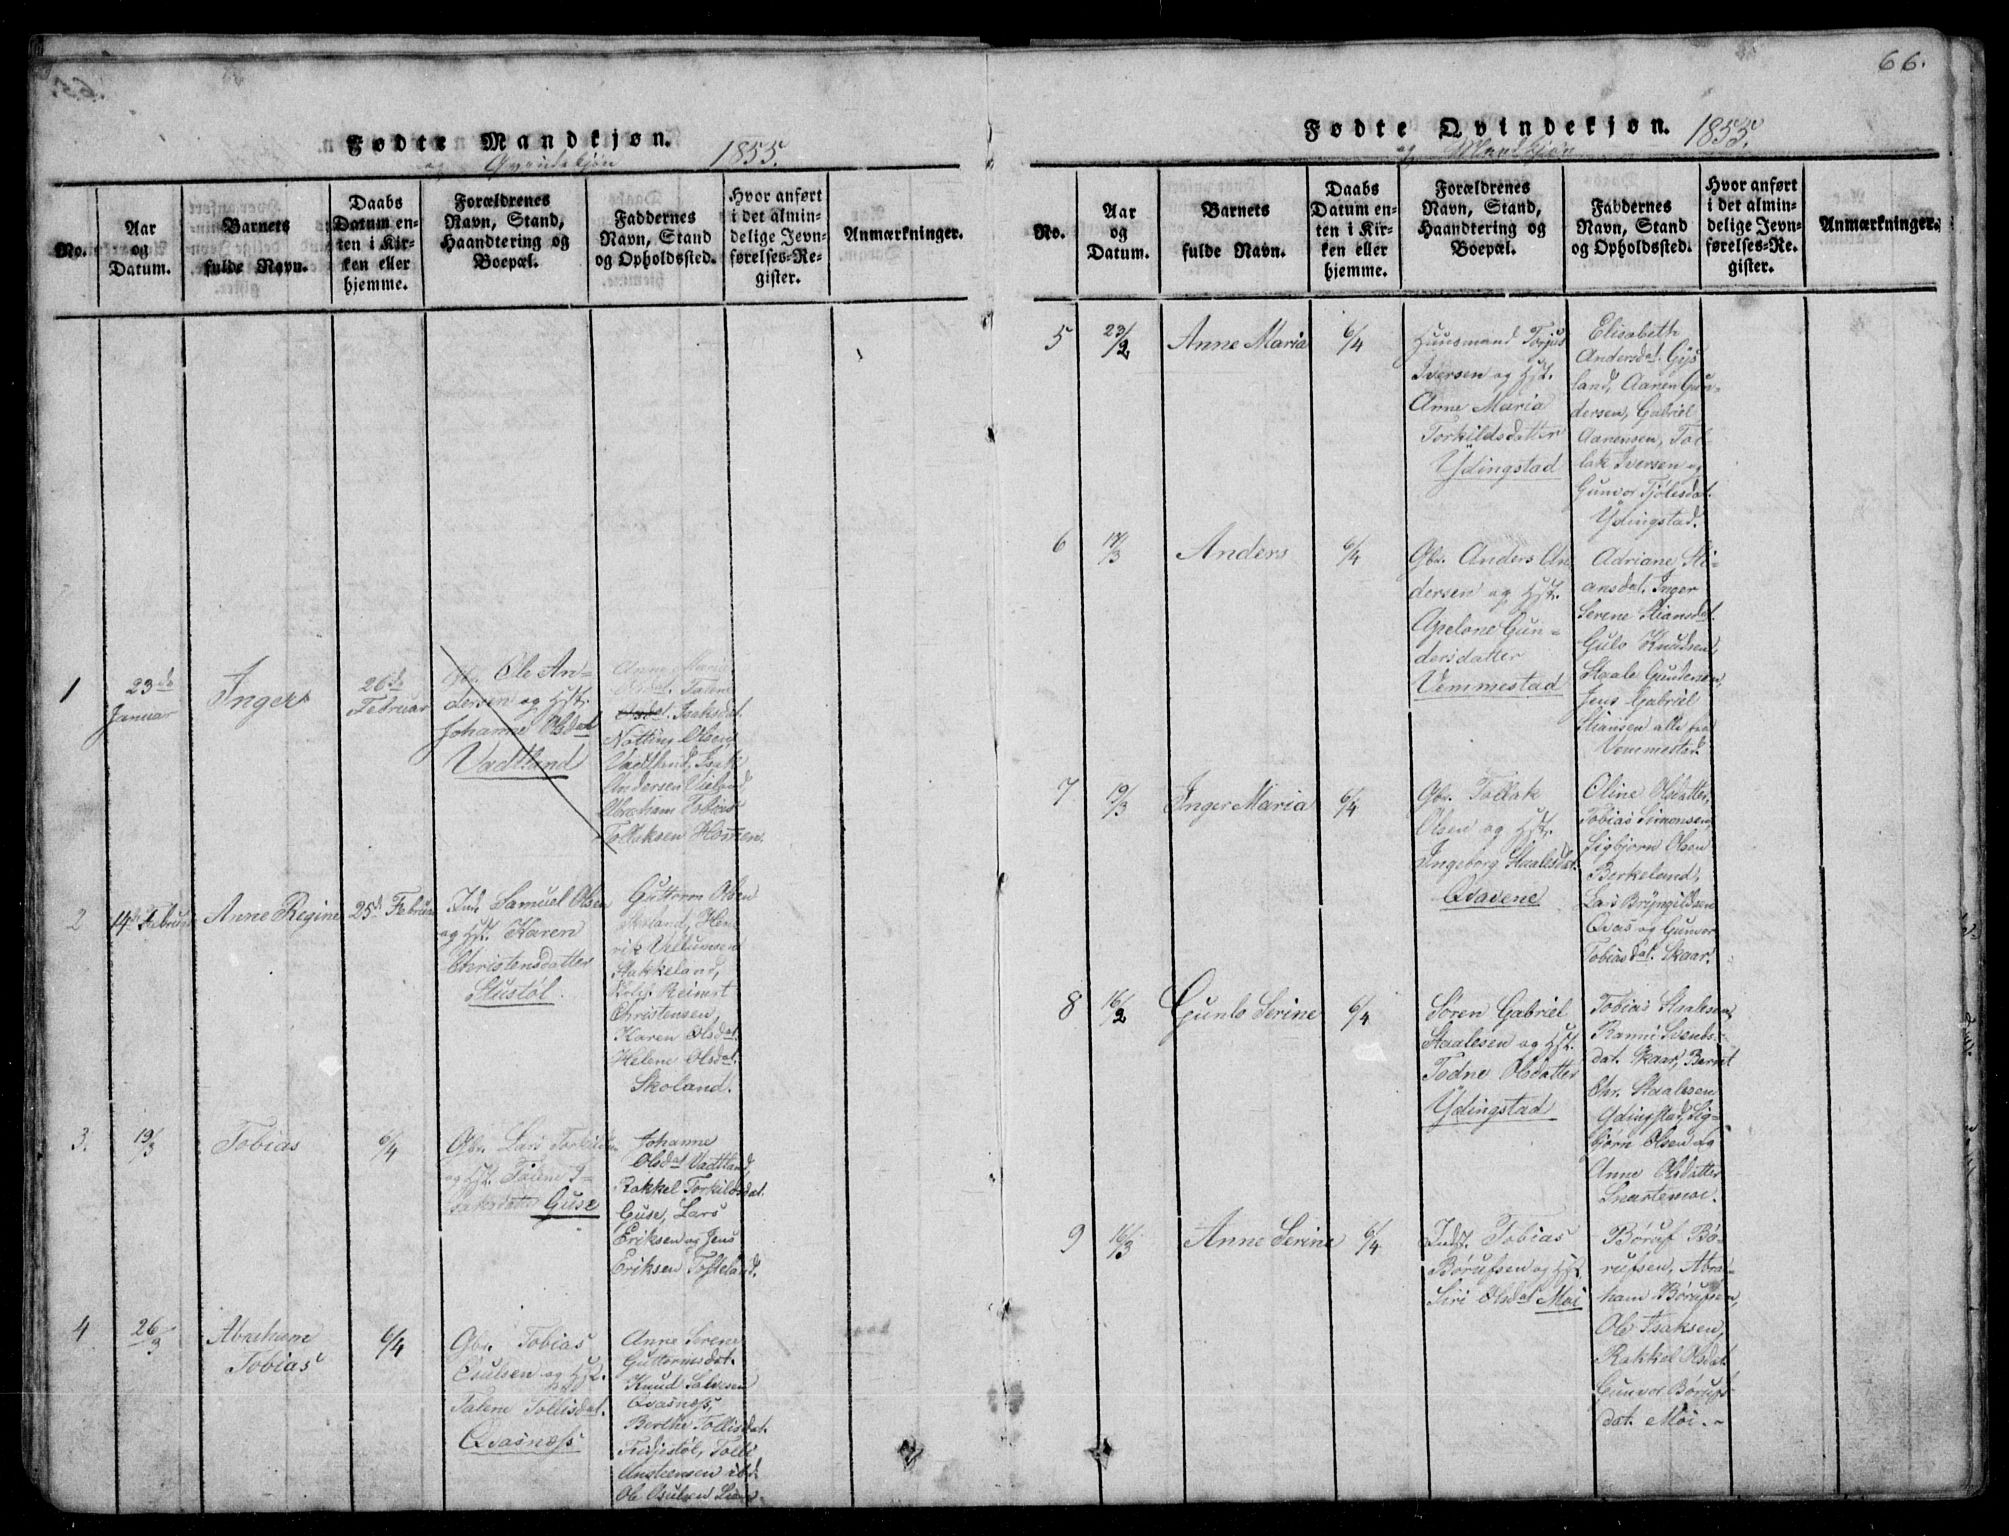 66.
Fødte Mandkjøn. 1855.
og Qvindekjøn
No.
Aar
og
Datum.
Barnets
fulde Navn.
Daabs
Datum en-
ten i Kir-
ken eller
hjemme.
Forældrenes
Navn, Stand,
Haandtering og
Boepæl.
Faddernes
Navn, Stand
og Opholdssted.
Hvor anført
i det almin-
delige Jevn-
førelses-Re-
gister.
Anmærkninger.
1
23de
Januar
Inger
26de
Februar
Ole An-
dersen og Hst.
Johanne Olsdat
Vadtland
Anne Maria
Talene
Isaksdat.
Olsen
Vadtland, Isak
Andersen
Abraham Tobias
Tollaksen
2
14de Februar
Anne Regine
25de Februar
Ind. Samuel Olsen
og Hst. Karen
Christensdatter
Stustøl.
Guttorm Olsen
Hen-
rik
Stakkeland,
Reinert
Christensen,
Karen Olsdat.
Helene Olsdat.
Skoland.
3.
19/3
Tobias
6/4
Gbr. Lars Torkildsen
og Hst. Talene I-
saksdatter Guse
Johanne
Olsdat Vadtland,
Rakkel Torkildsdat.
Guse, Lars
Eriksen og Jens
Eriksen Tofteland.
4
26/3
Abraham
Tobias
6/4
Gbr. Tobias
Osulsen og Hst.
Talene Tollisdat.
Qvasnæss
Anne Serene
Guttormsdat.
Knud Salvesen
Qvasnæss,
Berthe Tollisdat.
Tolli
Anstensen ibd.
Ole Osulsen
Fødte Qvindekjøn. 1855.
og Mandkjøn
No.
Aar
og
Datum.
Barnets
fulde Navn.
Daabs
Datum en-
ten i Kir-
ken eller
hjemme.
Forældrenes
Navn, Stand,
Haandtering og
Boepæl.
Faddernes
Navn, Stand
og Opholdssted.
Hvor anført
i det almin-
delige Jevn-
førelses-Re-
gister.
Anmærkninger.
5
23/2
Anne Maria
6/4
Huusmand Torjus
Iversen og Hst.
Anne Maria
Torkildsdatter
Ydingstad
Elisabeth
Andersdat. Gys
land, Aanen Gun-
dersen, Gabriel
Aanensen, Tol
lak Iversen og
Gunvor Tjølesdat.
Ydingstad.
6
17/3
Anders
6/4
Gbr. Anders An
dersen og Hst.
Apelone Gun-
dersdatter
Vemmestad
Adriane Sti-
ansdat. Inger
Serene Stiansdat.
Gulo Knudsen,
Staale Gundersen,
Jens Gabriel
Stiansen alle fra
Vemmestad.
7
19/3
Inger Maria
6/4
Gbr. Tollak
Olsen og Hst.
Ingeborg Staalesdat.
Qvavene
Oline Olsdatter,
Tobias Simonsen,
Sigbjørn Olsen
Birkeland,
Lars Bryngildsen
Qvas og Gunvor
Tobiasdat. Skaar.
8
16/2
Gunlo Serine
6/4
Søren Gabriel
Staalesen og Hst.
Todne Olsdatter
Ydingstad
Tobias Staalesen,
Rannei Svends-
dat. Skaar, Bernt
Chr. Staalesen
Ydingstad, Sig-
bjørn Olsen og
Anne Olsdatter
Snartemoe.
9
16/3
Anne Serine
6/4
Inds. Tobias
Børufsen og Hst.
Siri Olsdat Moi
Børuf Bø-
rufsen, Abra-
ham Børufsen,
Ole Isaksen,
Rakkel Olsdat.
Gunvor Børufs
dat. Moi.